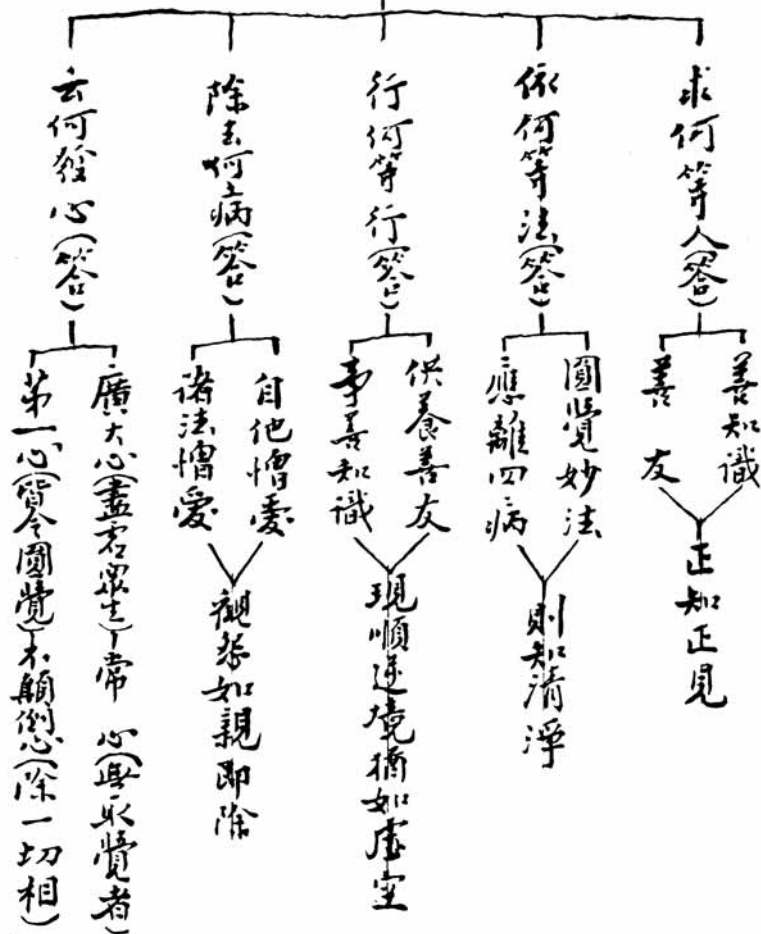 求何等人(答)
善知識
善友
正知正見
依何等法(答)
圓覺妙法
應離四病
則知清淨
行何等行(答)
供養善友
事善知識
現順逆境猶如虛空
除去何病(答)
自他憎愛
諸法憎愛
觀怨如親即除
云何發心(答)
廣大心(盡若眾生)常 心(無取覺者)
第一心(皆令圓覺)不顛倒心(除一切相)